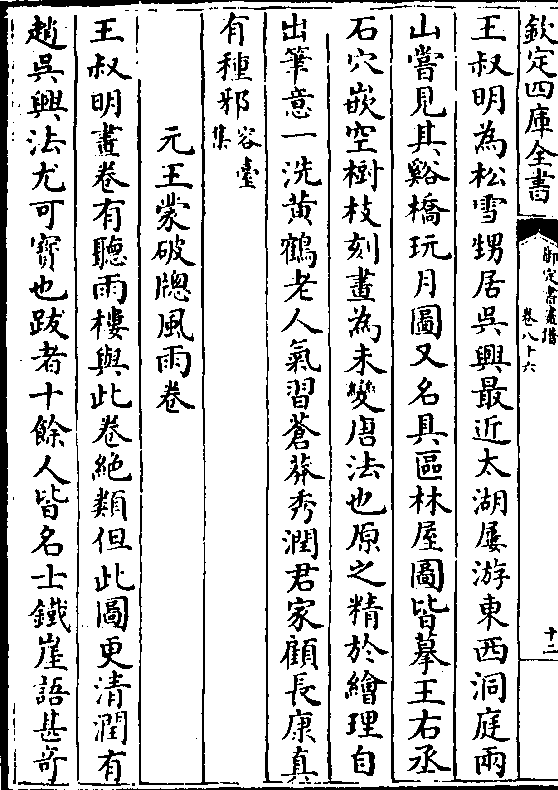 欽定四庫全書
御定書畫譜
卷八十六
十二
王叔明為松雪甥居吳興最近太湖屢游東西洞庭兩
山嘗見其谿橋玩月圖又名具區林屋圖皆摹王右丞
石穴嵌空樹枝刻畫為未變唐法也原之精於繪理自
出筆意一洗黄鶴老人氣習蒼莽秀潤君家顧長康真
有種邪容臺集
元王蒙破牕風雨卷
王叔明畫卷有聽雨樓與此卷絶類但此圖更清潤有
趙吳興法尤可寳也跋者十餘人皆名士鐵崖語甚竒